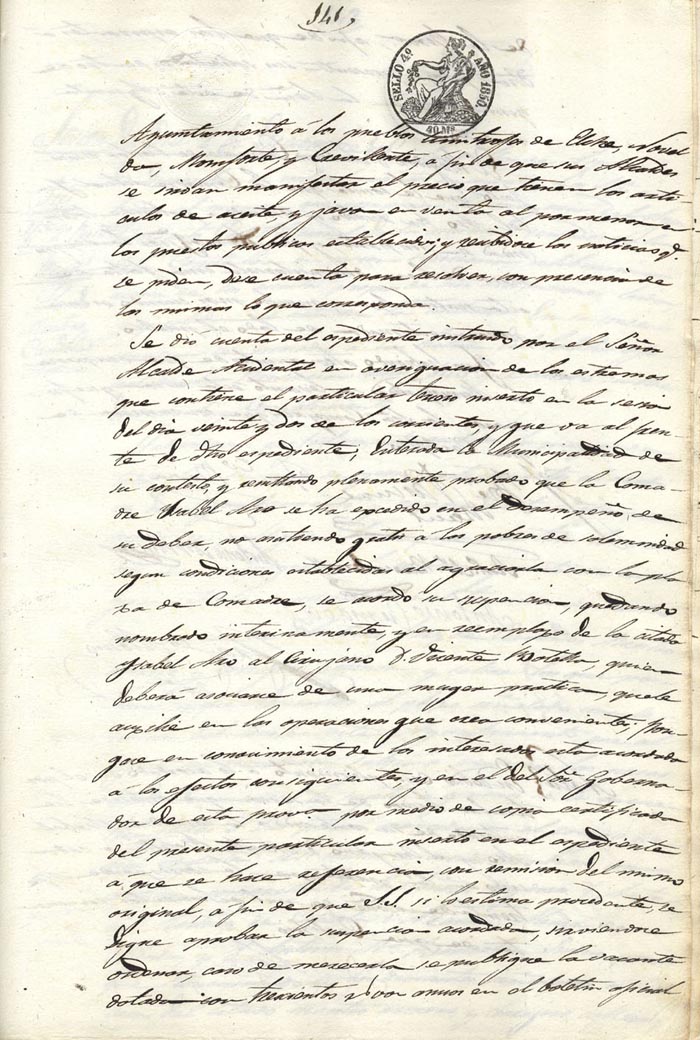 141
SELLO 4º AÑO 1850.
40 Ms.
Ayuntamiento á los pueblos limitrofes de Elche, Novel
da, Monforte y Crevillente, á fin de que sus Alcaldes
se sirvan manifestar el precio que tienen los arti
culos de aceite, y javon en venta al por menor en
los puestos publicos establecidos; y recibidose las noticias q.
se piden, dese cuenta para resolver, con presencia de
las mismas lo que corresponda.
Se dió cuenta del espediente instruido por el Señor
Alcalde Accidental en averiguacion de los estremos
que contiene el particular tercero inserto en la sesion
del dia veinte y dos de los corrientes, y que va al fren
te de dho espediente; Enterada la Municipalidad de
su contesto, y resultando plenamente probado que la Coma
dre Ysabel Aro se ha excedido en el desempeño de
su deber, no asistiendo gratis a los pobres de solemnidad
segun condiciones establecidas al agraciarla con la pla
za de Comadre, se acordó su supencion, quedando
nombrado interinamente, y en reemplazo de la citada
Ysabel Aro al Cirujano D. Vicente Botella, quien
deberá asociarse de una muger práctica, que le
auxilie en las operaciones que crea conveniente, pon
gase en conocimiento de los interesados este acordado
á los efectos consiguientes, y en el del Sor. Goberna
dor de esta prova. por medio de copia certificada
del presente particular inserto en el espediente
á que se hace referencia, con remision del mismo
original, á fin de que S.S. si lo estima procedente, se
digne aprobar la supencion acordada, sirviendose
ordenar, caso de merecerla se publique la vacante
dotada con trescientos rs. von anuos en el boletin oficial